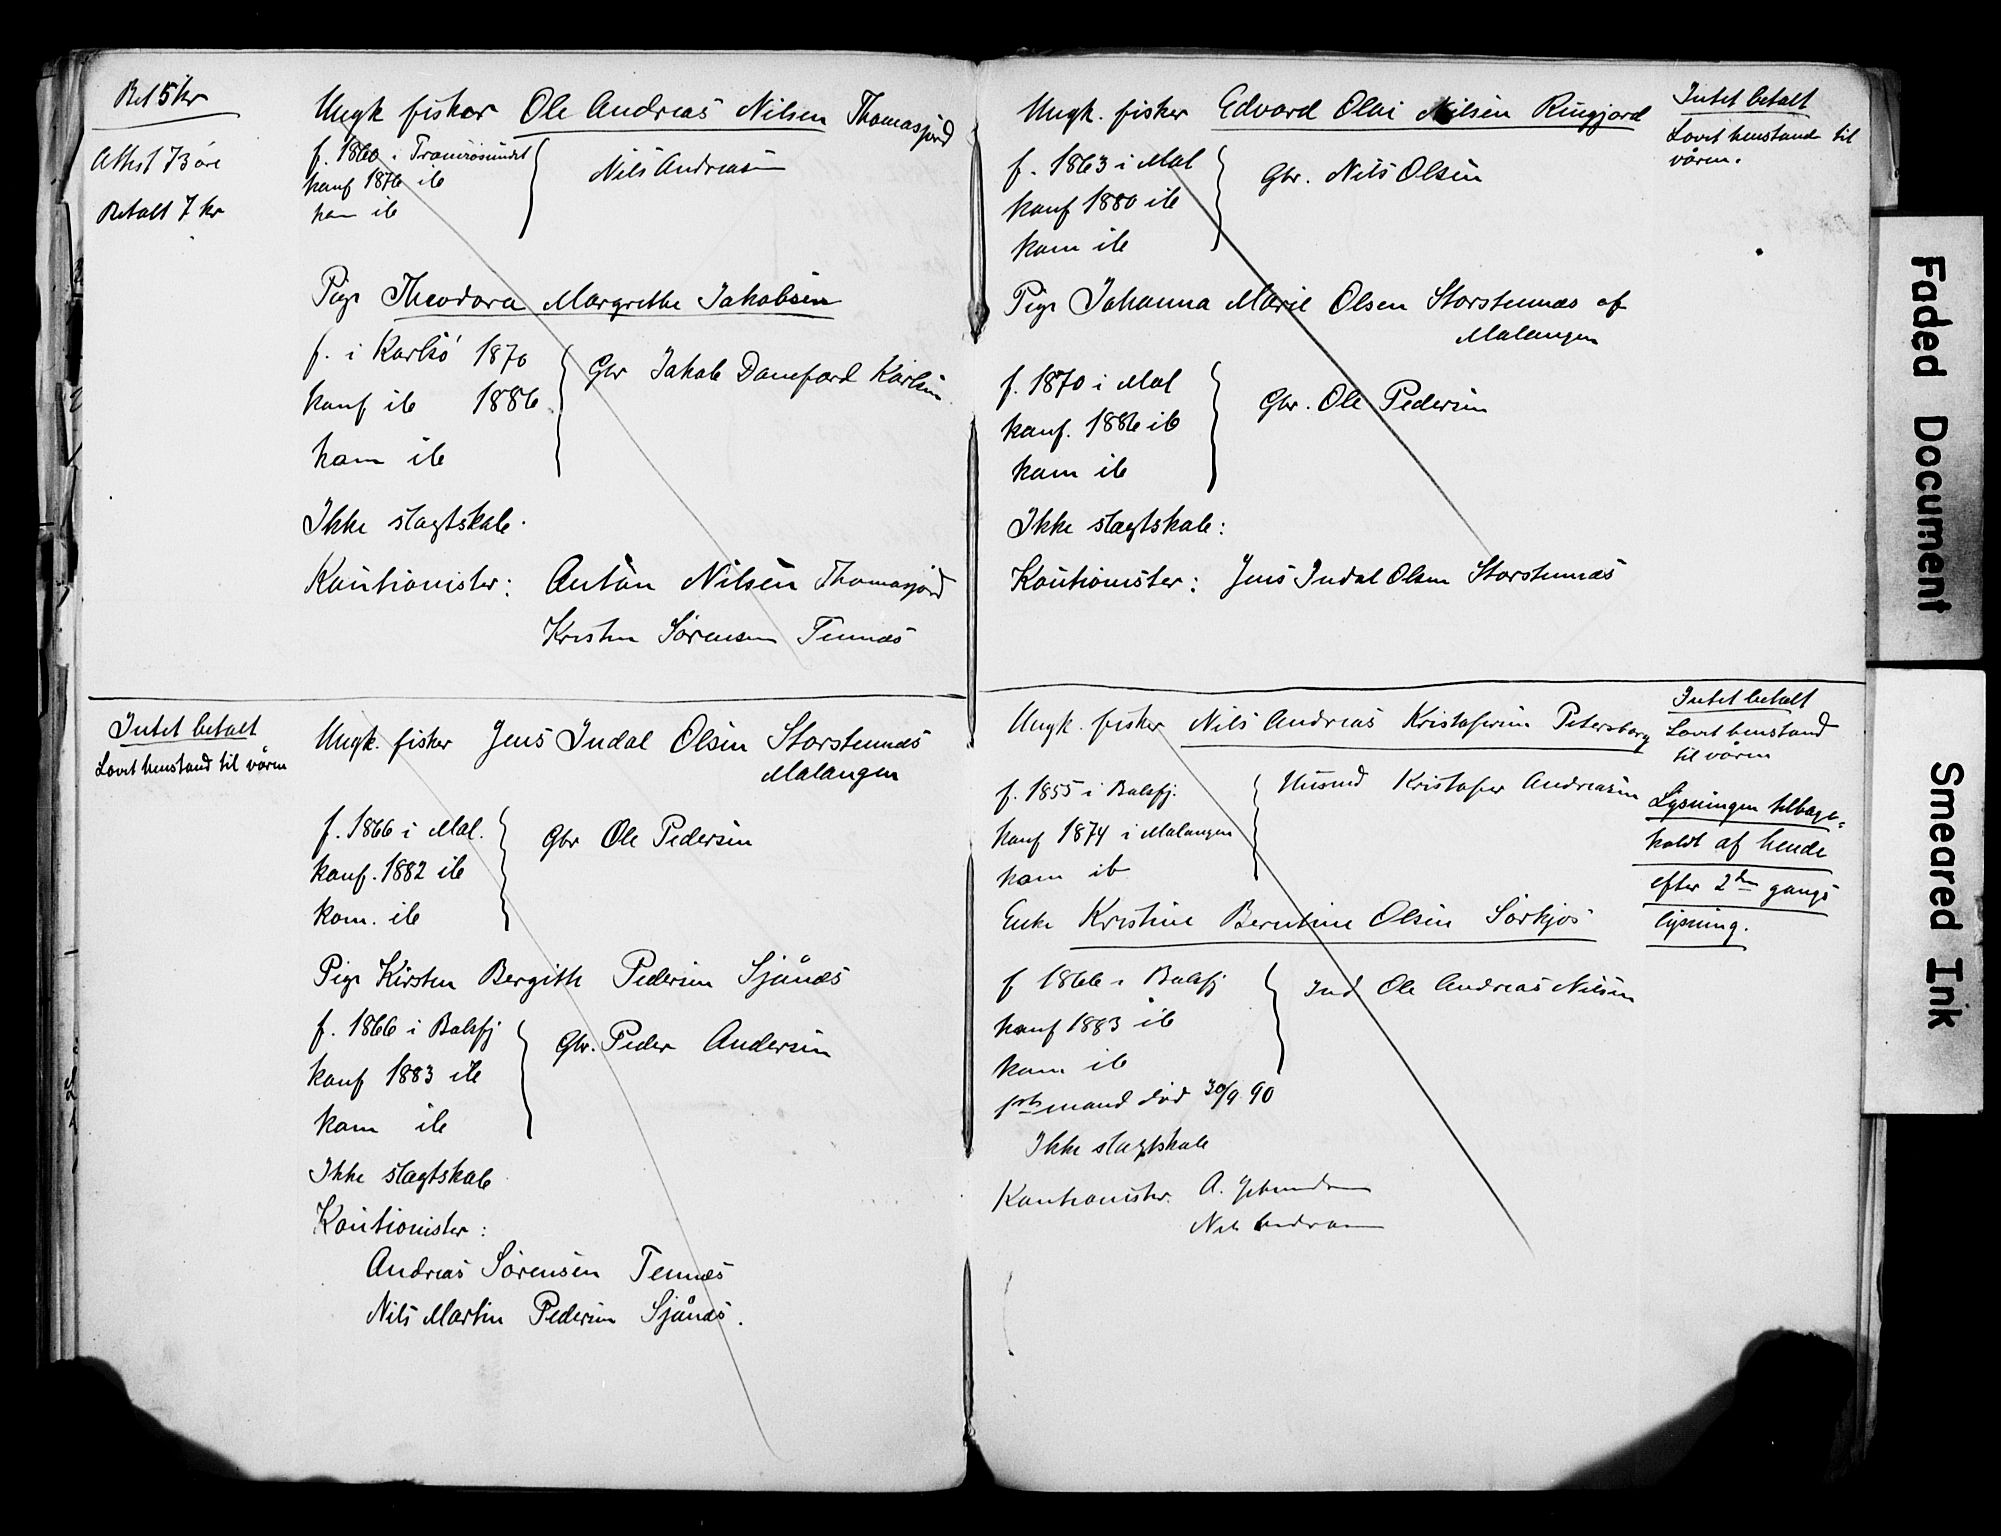 Bet 5 kr
Attest 73 öre
Betalt 7 kr
Ungk fisker Ole Andreas Nilsen Thomasjord
f. 1860 i Tromsösundet
konf 1876 ib
kom ib
Nils Andreasen
Pige Theodora Margrethe Jakobsen
f. i Karlsö 1870
konf ib 1886
kom ib
Gbr Jakob Danefard Karlsen
Ikke slægtskab.
Kautionister: Anton Nilsen Thomasjord
Kristen Sörensen Tennæs
Intet betalt
Lovet henstand til våren
Ungk. fisker Jens Indal Olsen Storstennæs
Malangen
f. 1866 i Mal.
konf. 1882 ib
kom. ib
Gbr Ole Pedersen
Pige Kirsten Bergithe Pedersen Sjånæs
f. 1866 i Balsfj
konf 1883 ib
kom ib
Gbr. Peder Andersen
Ikke slægtskab
Kautionister:
Andreas Sörensen Tennæs
Nils Martin Pedersen Sjånæs.
Ungk. fisker Edvard Olai Nilsen Ringjord
f. 1863 i Mal
konf 1880 ib
kom ib
Gbr. Nils Olsen
Intet betalt
Lovet henstand til
våren.
Pige Johanna Marie Olsen Storstennæs af
Malangen
f. 1870 i Mal
konf. 1886 ib
kom ib
Gbr. Ole Pedersen
Ikke slægtskab:
Kautionister: Jens Indal Olsen Storstennæs
Ungk. fisker Nils Andreas Kristofersen Petersborg
f. 1855 i Balsfj.
konf 1874 i Malangen
kom ib
Husmd Kristofer Andreasen
Intet betalt
Lovet henstand
til våren
Lysningen tilbage-
holdt af hende
efter 2den gangs
lysning.
Enke Kristine Berntine Olsen Sörkjos
f 1866 i Balsfj
konf 1883 ib
kom ib
Ind Ole Andreas Nilsen
1ste mand död 30/9 90
Ikke slægtskab
Kautionister. A.
Nils Andreasen
Faded Document
Smeared Ink